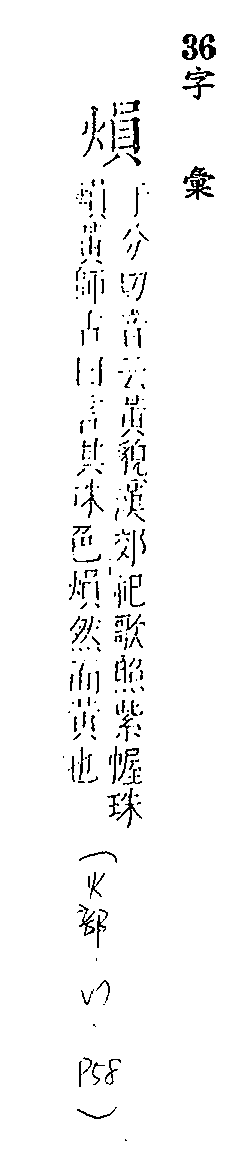 36字彙
熉
于分切音云黃貌漢郊祀歌照紫幄珠
熉黃師古曰言其珠色熉然而黃也
(火部. . P58)